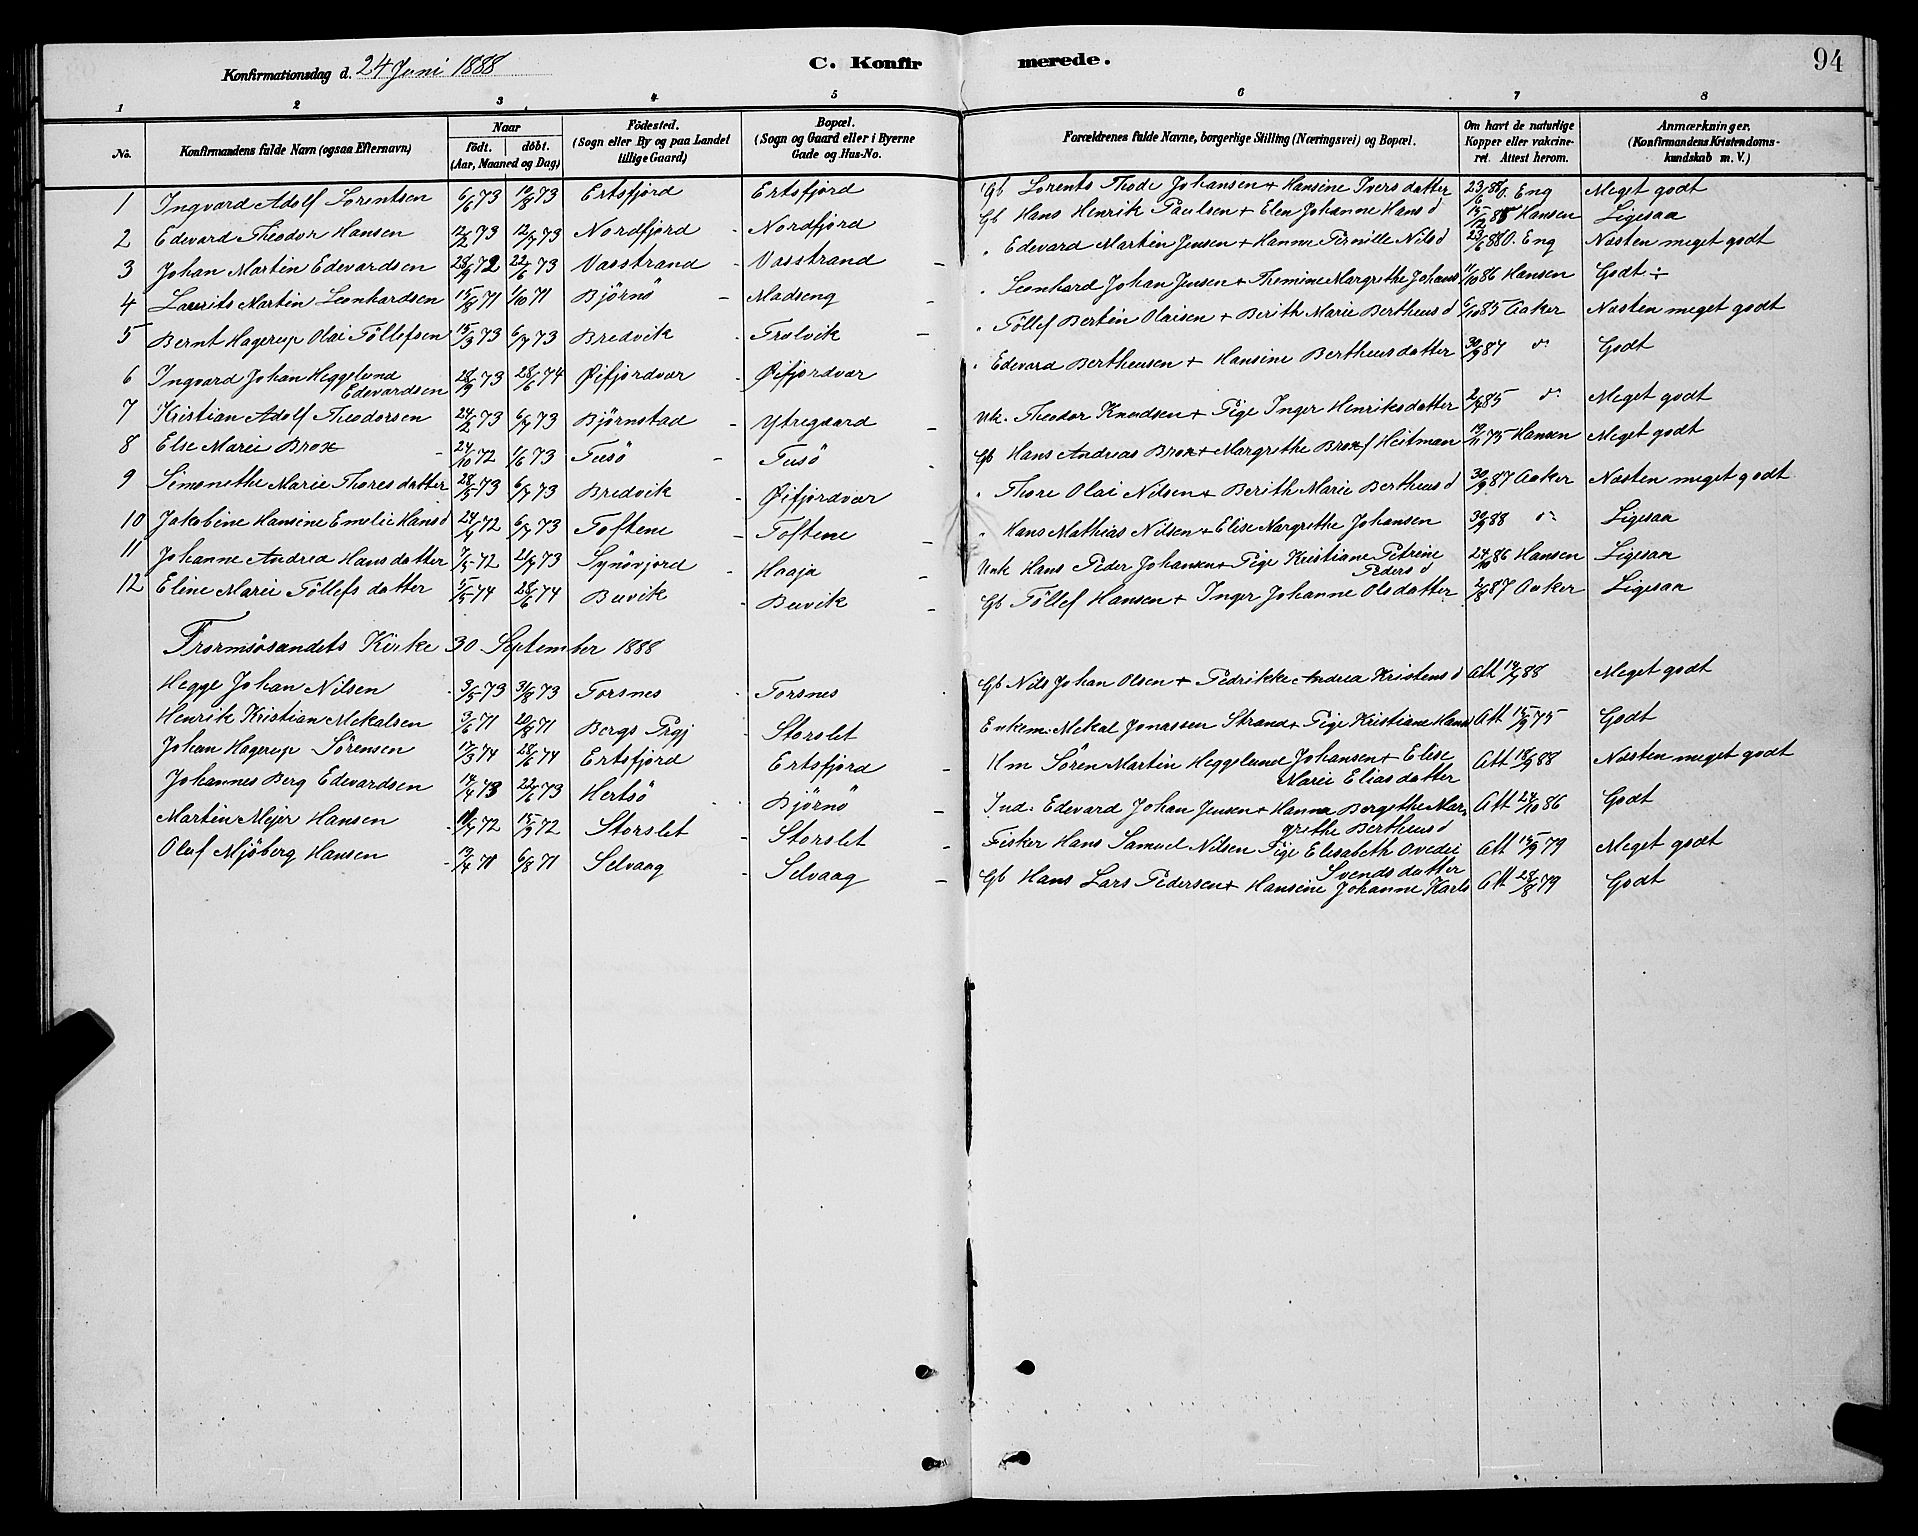 Konfirmationsdag d. 24 Juni 1888 C. Konfirmerede. 94
1 2 3 4 5 6 7 8
No. Konfirmandens fulde Navn (ogsaa Efternavn) Naar født. døbt. (Aar, Maaned og Dag) Födested. (Sogn eller By og paa Landet tillige Gaard) Bopæl. (Sogn og Gaard eller i Byerne Gade og Hus-No. Forældrenes fulde Navne, borgerlige Stilling (Næringsvei) og Bopæl. Om havt de naturlige Kopper eller vakcineret. Attest herom. Anmærkninger. (Konfirmandens Kristendomskundskab m. V.)
1 Ingvard Adolf Lorentsen 6/6 73 10/8 73 Ertsfjord Ertsfjord Gb Lorents Thode Johansen + Hansine Iversdatter 23/6 88 O. Eng Meget godt
2 Edevard Theodor Hansen 12/2 73 12/7 73 Nordfjord - Nordfjord Gb Hans Henrik Paulsen + Elen Johanne Hansd 15/12 85 Hansen Ligesaa
3 Johan Martin Edevardsen 28/9 72 22/6 73 Vasstrand - Vasstrand - " Edevard Martin Jensen + Hanne Pernille Nilsd 23/6 88 O. Eng Næsten meget godt
4 Laurits Martin Leonhardsen 15/8 71 1/10 71 Björnö - Madseng - " Leonhard Johan Jensen + Themine Margrethe Johans 11/10 86 Hansen Godt ÷
5 Bernt Hagerup Olai Töllefsen 15/3 73 6/7 73 Bredvik Trolvik - " Töllef Bertin Olaisen + Berith Marie Bertheusd 6/10 85 Aaker Næsten meget godt
6 Ingvard Johan Heggelund Edevardsen 28/9 73 28/6 74 Øifjordvær - Øifjordvær " Edevard Bertheusen + Hansine Bertheusdatter 30/9 87 do Godt
7 Kristian Adolf Theodorsen 24/2 73 6/7 73 Björnstad - Ytregaard - Unk. Theodor Knudsen + Pige Inger Henriksdatter 2/9 85 do Meget godt
8 Else Marie Brox - 24/10 72 1/6 73 Tusö - Tusö - Gb Hans Andreas Brox + Margrethe Brox f Heitman 19/11 75 Hansen Meget godt
9 Simonethe Marie Thoresdatter 28/5 73 6/7 73 Bredvik - Øifjordvær " Thore Olai Nilsen + Berith Marie Bertheusd 30/9 87 Aaker Næsten meget godt
10 Jakobine Hansine Emelie Hansd 24/4 72 6/7 73 Toftene - Toftene - " Hans Mathias Nilsen + Elise Margrethe Johansen 30/9 88 do Ligesaa
11 Johanne Andrea Hansdatter 7/5 72 21/9 73 Synövjord - Haaja - Unk Hans Peder Johansen + Pige Kristiane Petrine Pedersd 24/10 86 Hansen Ligesaa
12 Eline Marie Töllefsdatter 5/5 74 28/6 74 Buvik - Buvik - Gb Töllef Hansen + Inger Johanne Olsdatter 2/8 87 Aaker Ligesaa
Tromsösundets Kirke 30 September 1888
Hegge Johan Nilsen 3/5 73 3/8 73 Torsnes - Torsnes Gb Nils Johan Olsen + Pedrikke Andrea Kristensd Att 14/9 88 Meget godt
Henrik Kristian Mekalsen 3/6 71 20/8 71 Bergs Prgj Storslet Enkem. Mekal Jonassen Strand + Pige Kristiane Hansd Att 15/9 75 Godt
Johan Hagerup Sörensen 17/3 74 28/6 74 Ertsfjord Ertsfjord - Hm Sören Martin Heggelund Johansen + Elise Marie Eliasdatter Att 18/9 88 Næsten meget godt
Johannes Berg Edevardsen 14/4 73 22/6 73 Hertsö - Björnö - Ind. Edevard Johan Jensen + Hanna Bergethe Margrethe Bertheusd Att 24/10 86 Godt
Martin Mejer Hansen 11/7 72 15/9 72 Storslet - Storslet - Fisker Hans Samuel Nilsen Pige Elisabeth Ovedie Svendsdatter Att 15/9 79 Meget godt
Oluf Mjöberg Hansen 13/4 71 6/8 71 Selvaag - Selvaag - Gb Hans Lars Pedersen + Hansine Johanne Karls Att 28/8 79 Godt